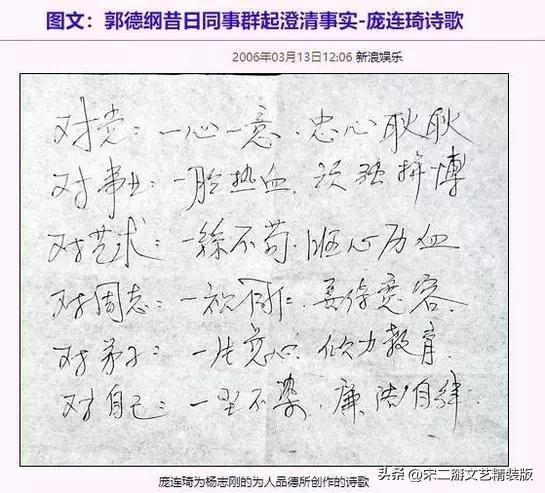 图文：郭德纲昔日同事群起澄清事实-庞连琦诗歌
2006年03月13日12:06 新浪娱乐
对党：一心一意，忠心耿耿
对事业：一腔热血，顽强拼博
对艺术：一丝不苟，呕心历血
对同志：一视同仁，宽容
对弟子：一片爱心，倾力教育
对自己：一尘不染，廉洁自律
庞连琦为杨志刚的为人品德所创作的诗歌
头条@宋二掰文艺精装版